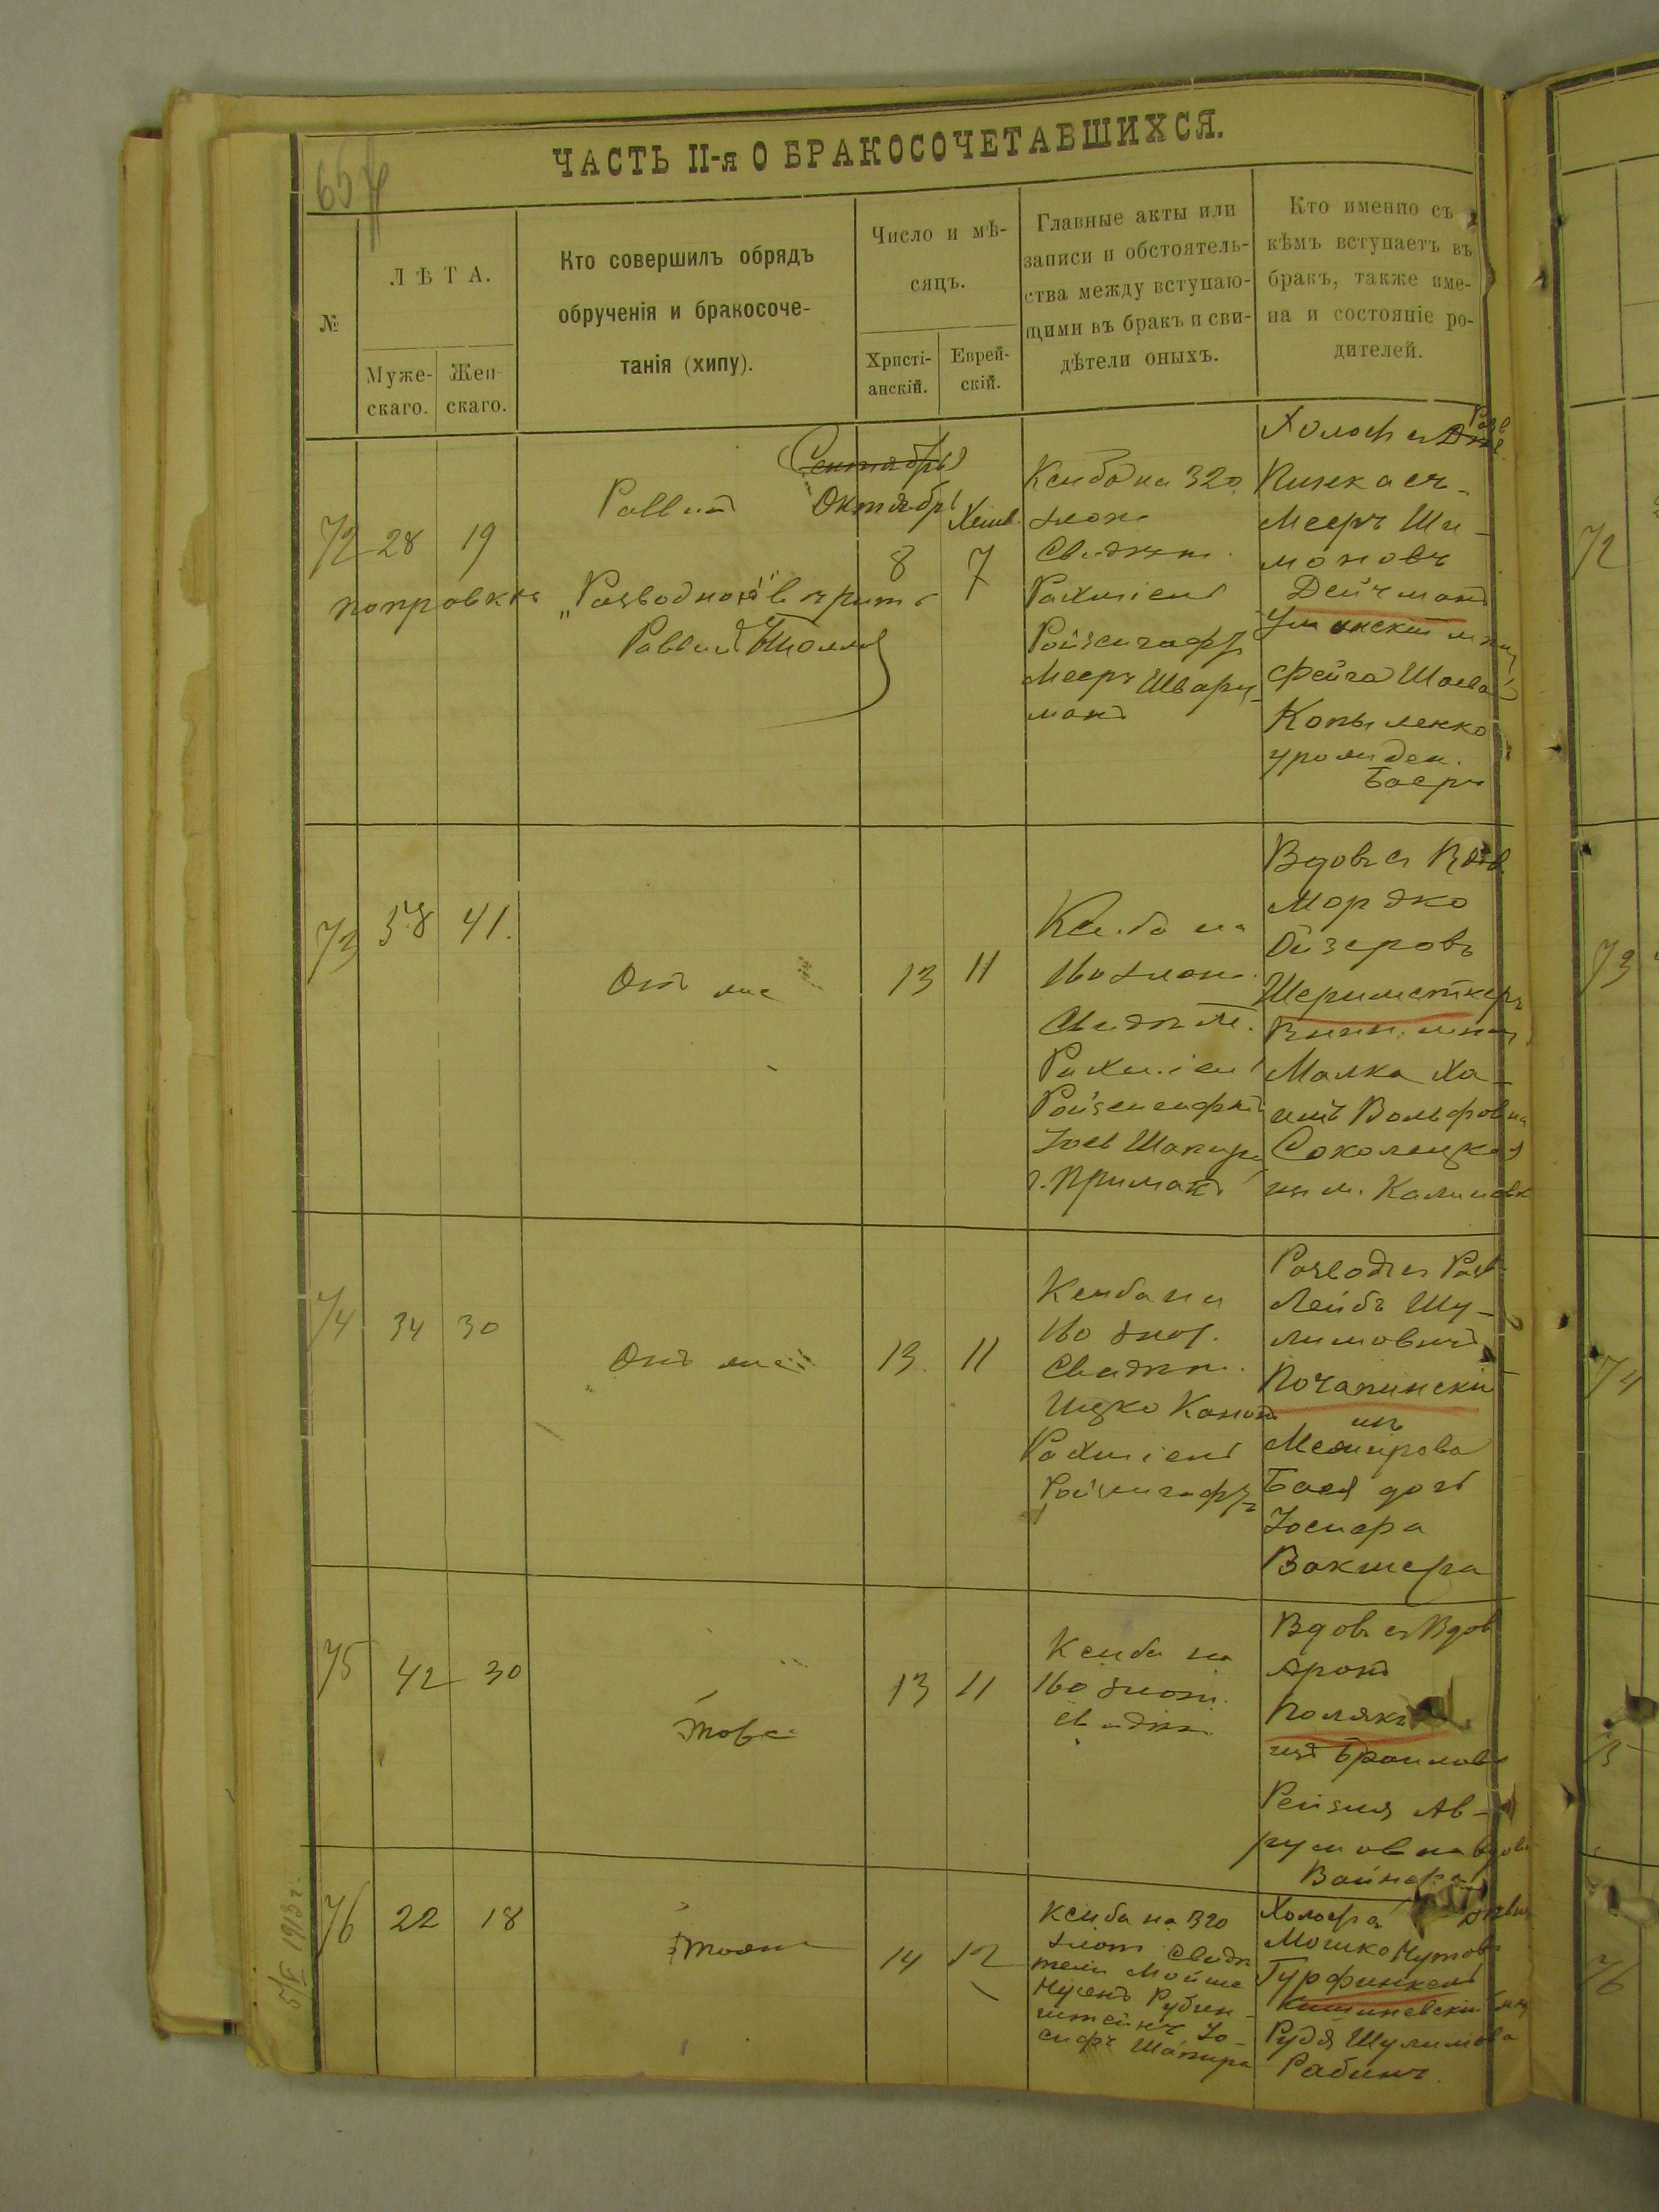 657
ЧАСТЬ II-я О БРАКОСОЧЕТАВШИХСЯ.
№
ЛѢТА.
Муже-
скаго.
Жен-
скаго.
Кто совершилъ обрядъ
обрученія и бракосоче-
танія (хипу).
Число и мѣ-
сяцъ.
Христі-
анскій.
Еврей-
скій.
Главные акты или
записи и обстоятель-
ства между вступаю-
щими въ бракъ и сви-
дѣтели оныхъ.
Кто именно съ
кѣмъ вступаетъ въ
бракъ, также име-
на и состояніе ро-
дителей.
72
28
19
поправкѣ
Раввинъ
"Разводною" вѣрить
Раввинъ
Сентябрь
Октябрь
8
Хешв.
7
Ксиба на 320
злот
Свидѣт.
Рахміель
Ройзенгафъ
Мееръ Шварц-
манъ
Холост съ
Разв
Пинкасъ-
Мееръ Ши-
моновъ
Дейчманъ
Уманскій мѣщ
Фейга Шаева
Копыленко
урожден.
Баеръ
73
58
41.
Онъ же
13
11
Ксиба на
160 злот.
Свидѣт.
Рахміель
Ройзенгафъ
Іось Шапиро
г. Приманъ
Вдовъ съ Вдов.
Мордко
Ойзеровъ
Шериметкеръ
Винн. мѣщ
Малка Ха-
Вольфовна
Соколецкая
из м. Калиновк
74
34
30
Онъ же
13.
11
Ксиба на
160 злот.
Свидѣт.
Ицко
Рахміель
Ройзенгафъ
Разводъ съ Разв
Лейбъ Шу-
лимовичъ
Почапинскій
изъ
Немирова
Бася дочь
Іосифа
Вакшера
75
42
30
Тоже
13
11
Ксиба на
160 злот.
свидѣт.
Вдовъ съ Вдов
Аронъ
Полякъ
изъ Браилова
Рейзия Ав-
румовна вдова
Вайнера
76
22
18
Тоже
14
12
Ксиба на 320
злот Свидѣ
тели Мойше
Нусенъ Рубин-
штейнъ Іо-
сифъ Шапира
Холост съ Дѣвиц
Мошко Нутов
Гурфинкель
Кишиневскій мѣщ
Рудя Шулимова
Рабинъ.
5/V 1913 г.
72
73
74
75
76